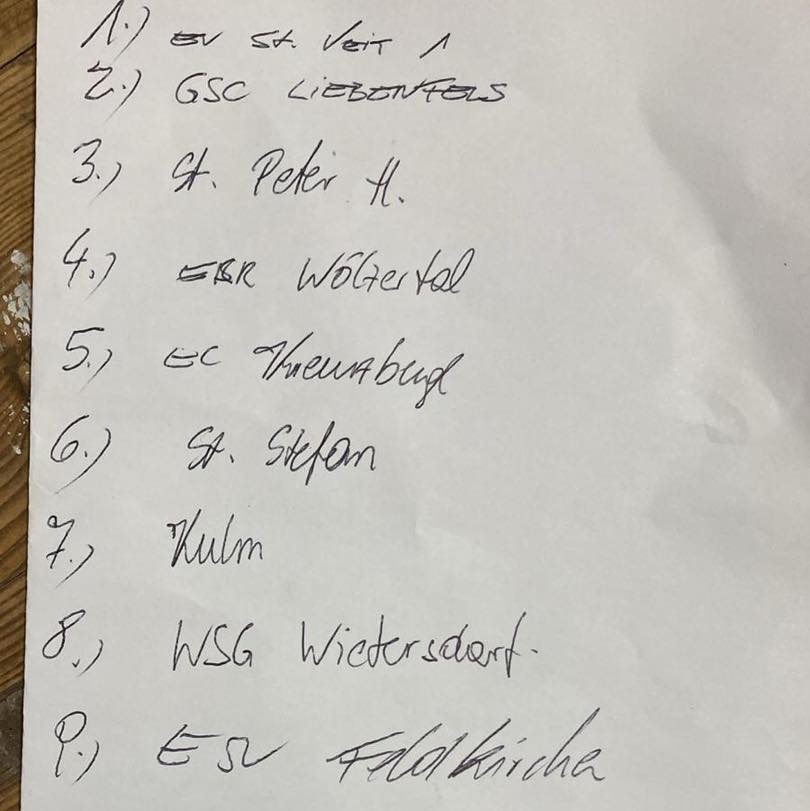 1.) EV St. Veit 1
2.) GSC LIEBENFELS
3.) St. Peter H.
4.) EBR Wölzertal
5.) EC
6.) St. Stefan
7.) Kulm
8.) WSG Wietersdorf.
9.) ESV Feldkirchen